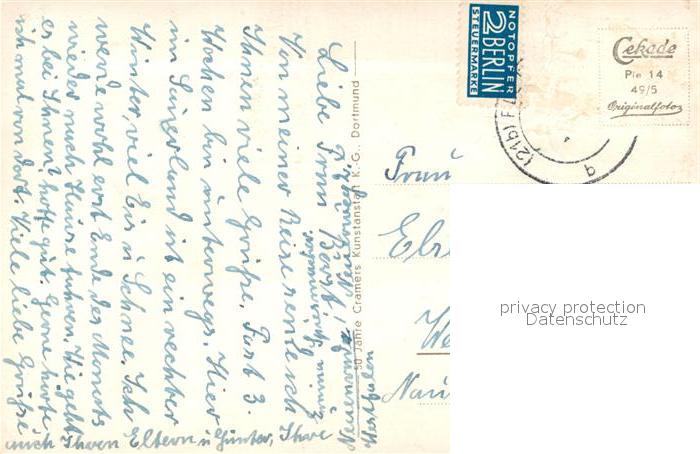 NOTOPFER
2 BERLIN
STEUERMARKE
Cekade
Pie 14
49/5
Originalfotos
(21b)
50 Jahre Cramers Kunstanstalt K.-G., Dortmund
Liebe Frau
Von meiner Reise sende ich
Ihnen viele Grüße. Fast 3
Wochen bin unterwegs. Hier
im Sauerland ist ein rechter
Winter, viel Eis u. Schnee. Ich
werde wohl erst Ende des Monats
wieder nach Hause fahren. Wie geht
es bei Ihnen? hoffe gut. Gerne hörte
ich mal von dort. Viele liebe Grüße
auch Ihren Eltern u. Günter, Ihre
Westfalen
Frau
privacy protection
Datenschutz